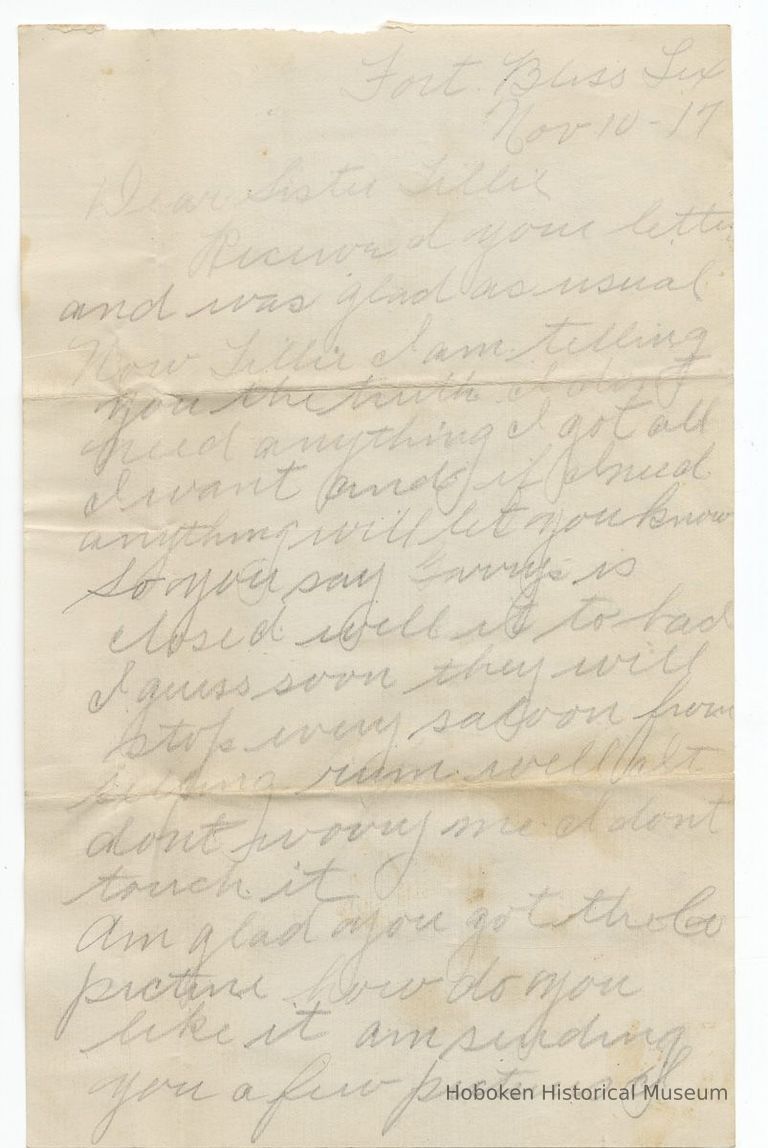 Fort. Bliss Tex
Nov 10-17
Dear Sister Tillie
Received your letter
and was glad as usual
Now Tillie I am telling
you the truth I don't
need anything I got all
I want and if I need
anything will let you know
So you say is
closed well it to bad
I guess soon they will
stop every saloon from
selling rum well it
dont worry me I dont
touch it
Am glad you got the Co
picture how do you
like it am sending
you a few of
Hoboken Historical Museum